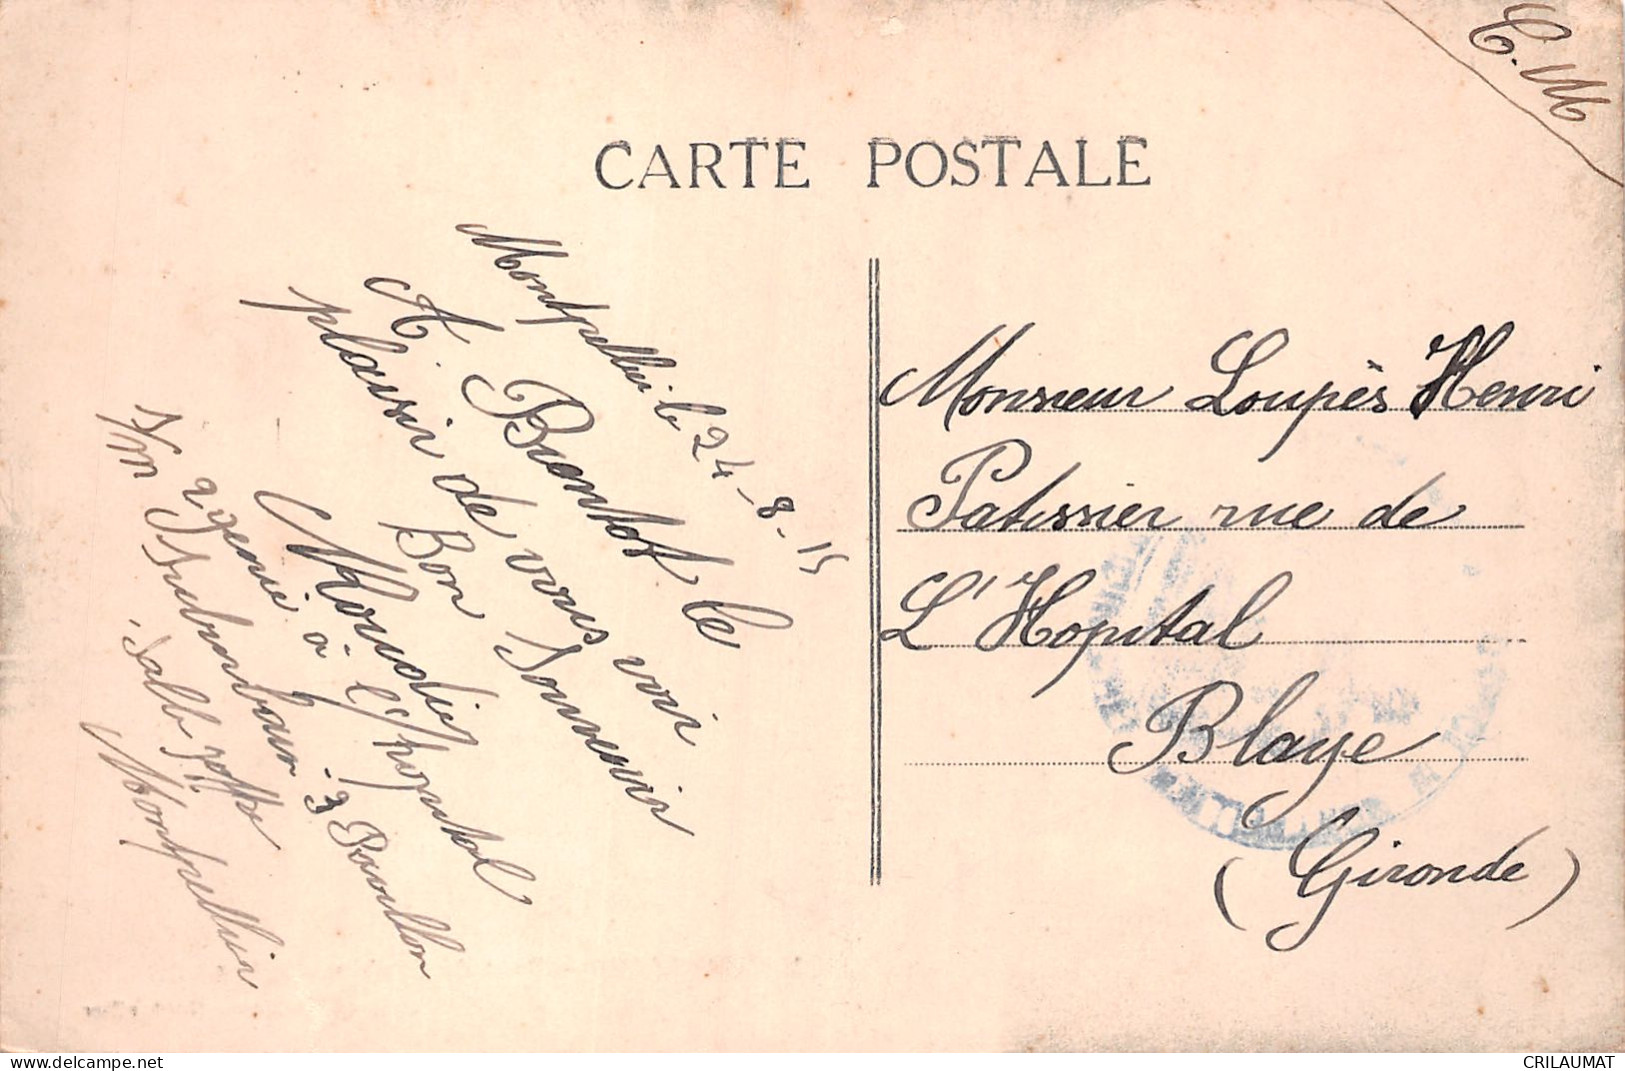 C. M
CARTE POSTALE
Montpellier le 24-8-15
A Bientot le
plaisir de vous voir
Bon Souvenir
à l'hopital
2 genie à
Pavillon
Salle
Montpellier
Monsieur Loupès Henri
Patissier rue de
L'Hopital
Blaye
(Gironde)
https://www.delcampe.net
CRILAUMAT